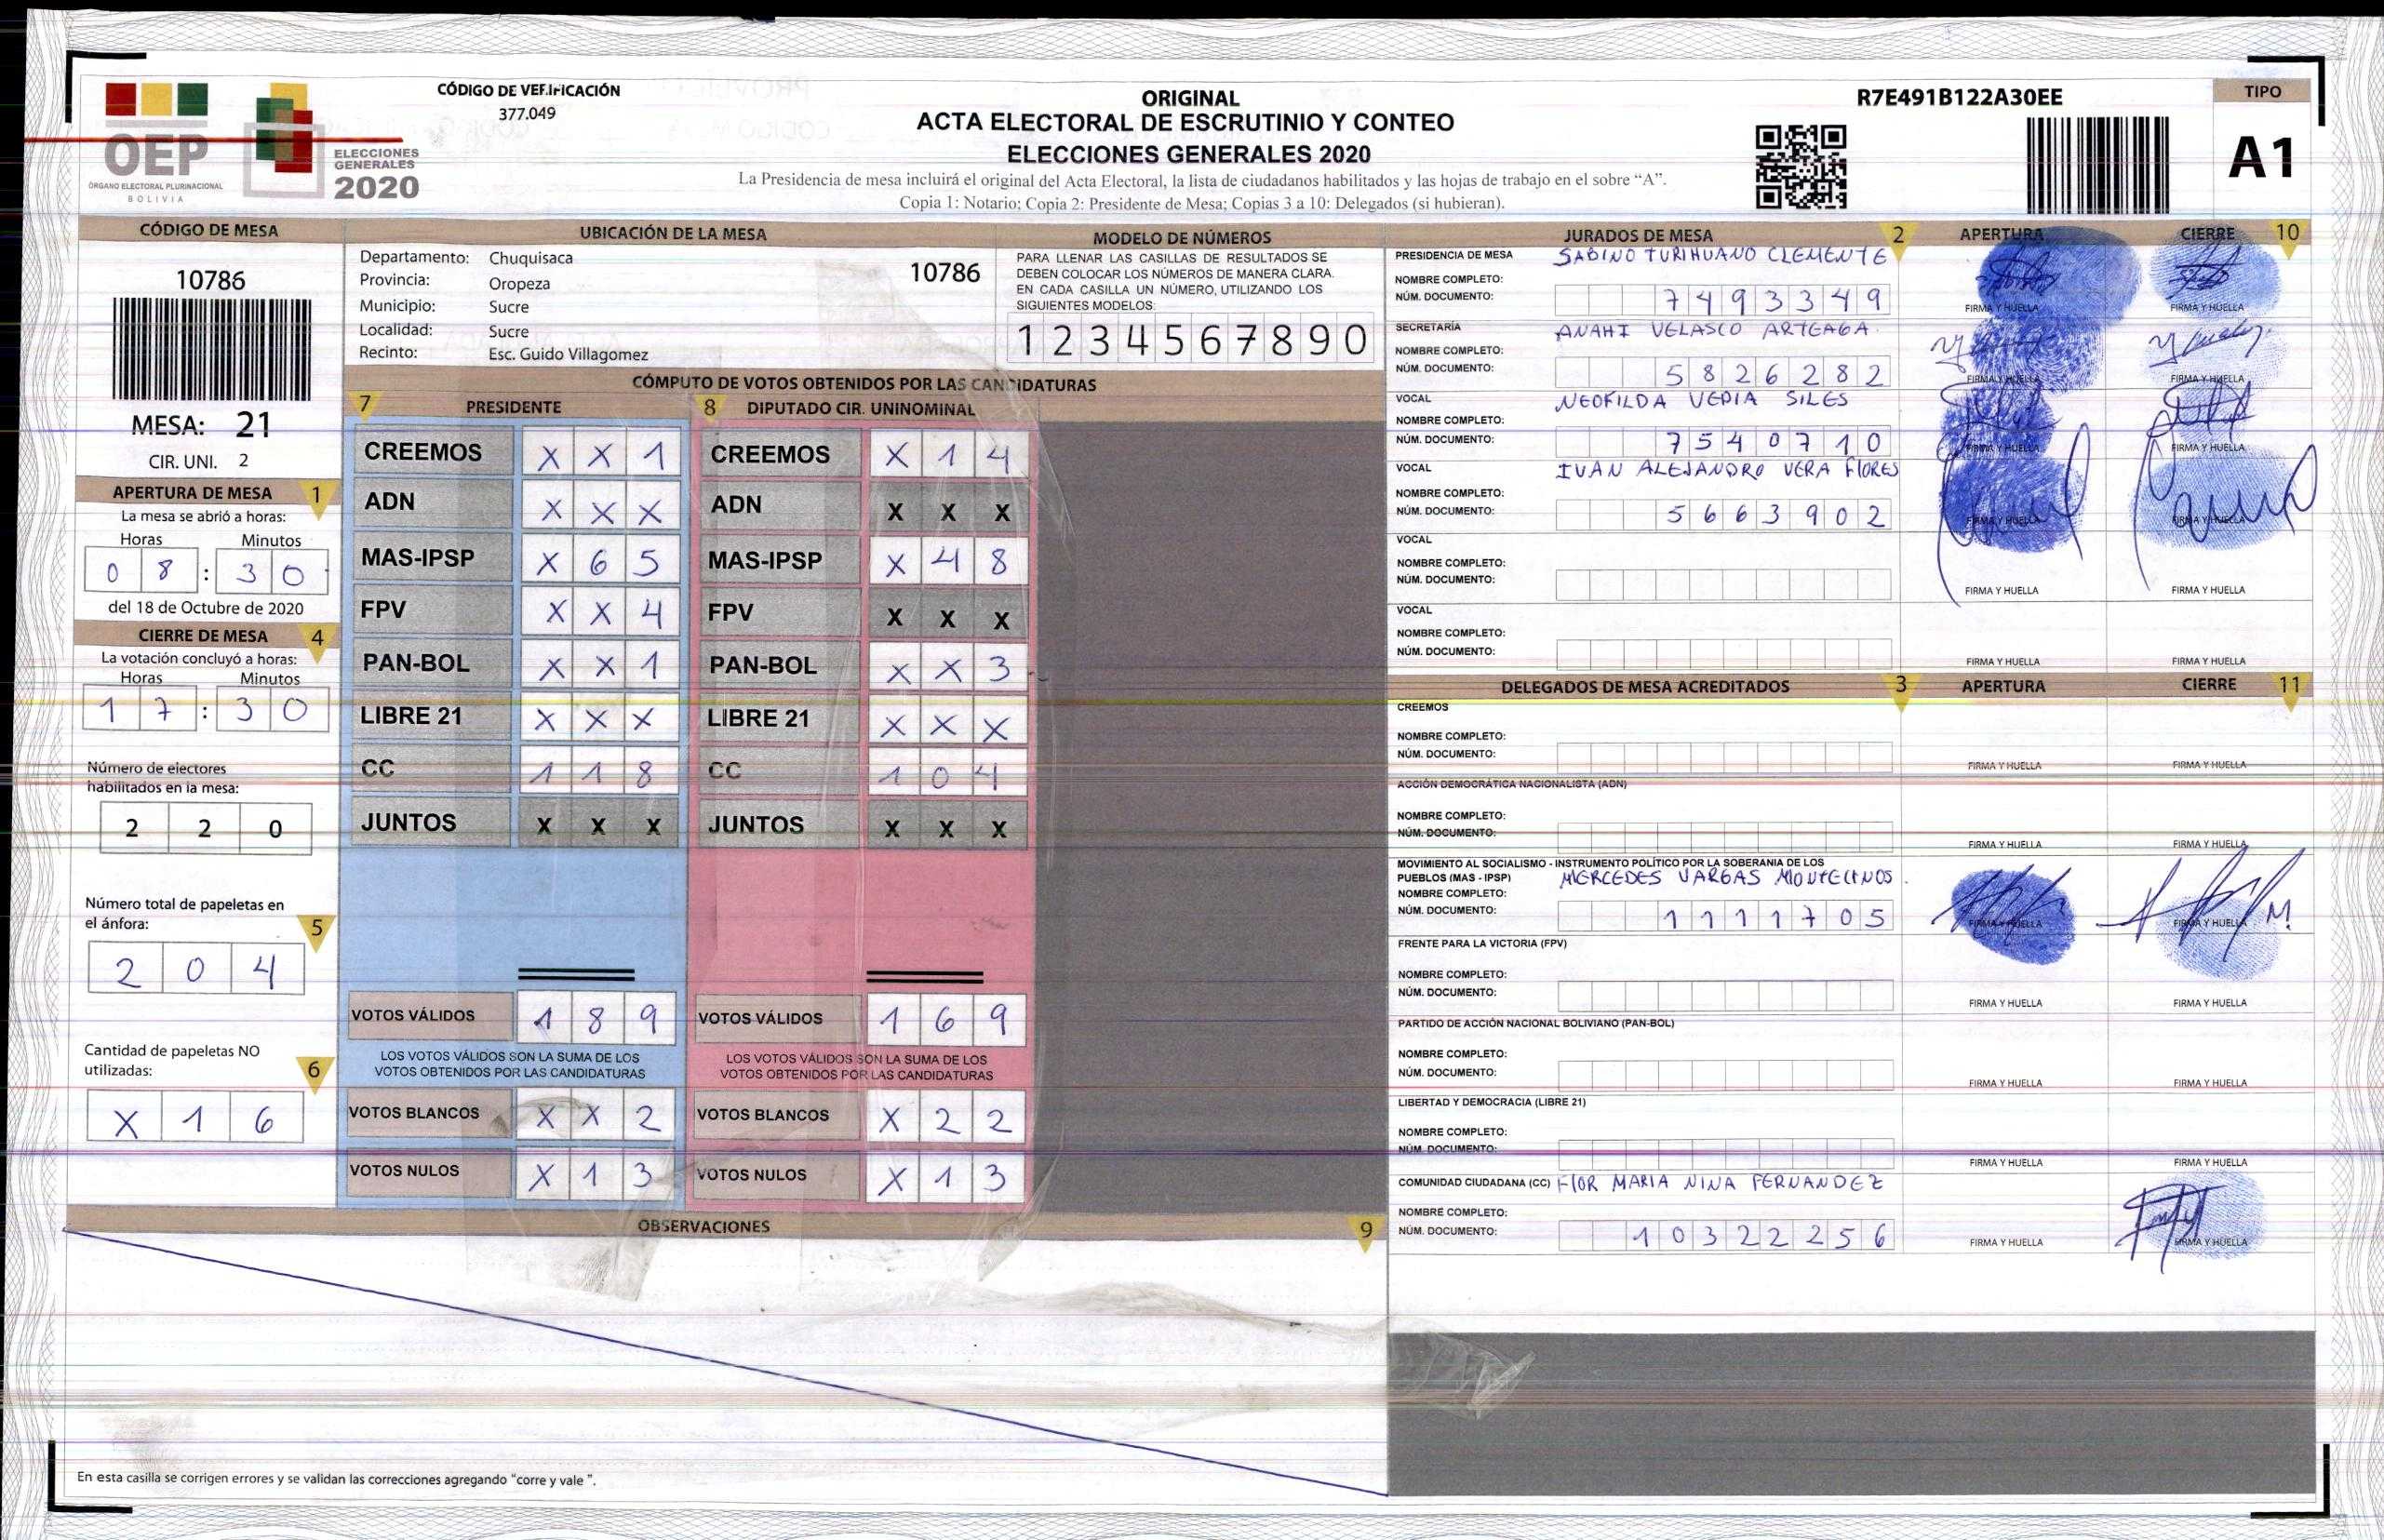 OEP
ÓRGANO ELECTORAL PLURINACIONAL
BOLIVIA
ELECCIONES
GENERALES
2020
CÓDIGO DE VERIFICACIÓN
377.049
ORIGINAL
ACTA ELECTORAL DE ESCRUTINIO Y CONTEO
ELECCIONES GENERALES 2020
La Presidencia de mesa incluirá el original del Acta Electoral, la lista de ciudadanos habilitados y las hojas de trabajo en el sobre “A”.
Copia 1: Notario; Copia 2: Presidente de Mesa; Copias 3 a 10: Delegados (si hubieran).
R7E491B122A30EE
TIPO
A1
CÓDIGO DE MESA
10786
MESA: 21
CIR. UNI. 2
APERTURA DE MESA 1
La mesa se abrió a horas:
Horas Minutos
0 8 : 3 0
del 18 de Octubre de 2020
CIERRE DE MESA 4
La votación concluyó a horas:
Horas Minutos
1 7 : 3 0
Número de electores
habilitados en la mesa:
2 2 0
Número total de papeletas en
el ánfora: 5
2 0 4
Cantidad de papeletas NO
utilizadas: 6
X 1 6
UBICACIÓN DE LA MESA
Departamento: Chuquisaca 10786
Provincia: Oropeza
Municipio: Sucre
Localidad: Sucre
Recinto: Esc. Guido Villagomez
MODELO DE NÚMEROS
PARA LLENAR LAS CASILLAS DE RESULTADOS SE
DEBEN COLOCAR LOS NÚMEROS DE MANERA CLARA.
EN CADA CASILLA UN NÚMERO, UTILIZANDO LOS
SIGUIENTES MODELOS:
1 2 3 4 5 6 7 8 9 0
CÓMPUTO DE VOTOS OBTENIDOS POR LAS CANDIDATURAS
7 PRESIDENTE 8 DIPUTADO CIR. UNINOMINAL
CREEMOS X X 1 CREEMOS X 1 4
ADN X X X ADN X X X
MAS-IPSP X 6 5 MAS-IPSP X 4 8
FPV X X 4 FPV X X X
PAN-BOL X X 1 PAN-BOL X X 3
LIBRE 21 X X X LIBRE 21 X X X
CC 1 1 8 CC 1 0 4
JUNTOS X X X JUNTOS X X X
VOTOS VÁLIDOS 1 8 9 VOTOS VÁLIDOS 1 6 9
LOS VOTOS VÁLIDOS SON LA SUMA DE LOS LOS VOTOS VÁLIDOS SON LA SUMA DE LOS
VOTOS OBTENIDOS POR LAS CANDIDATURAS VOTOS OBTENIDOS POR LAS CANDIDATURAS
VOTOS BLANCOS X X 2 VOTOS BLANCOS X 2 2
VOTOS NULOS X 1 3 VOTOS NULOS X 1 3
OBSERVACIONES 9
En esta casilla se corrigen errores y se validan las correcciones agregando “corre y vale ”.
JURADOS DE MESA 2 APERTURA CIERRE 10
PRESIDENCIA DE MESA SABINO TURIHUANO CLEMENTE
NOMBRE COMPLETO:
NÚM. DOCUMENTO: 7 4 9 3 3 4 9 FIRMA Y HUELLA FIRMA Y HUELLA
SECRETARÍA ANAHI VELASCO ARTEAGA.
NOMBRE COMPLETO:
NÚM. DOCUMENTO: 5 8 2 6 2 8 2 FIRMA Y HUELLA FIRMA Y HUELLA
VOCAL NEOFILDA VEDIA SILES
NOMBRE COMPLETO:
NÚM. DOCUMENTO: 7 5 4 0 7 1 0 FIRMA Y HUELLA FIRMA Y HUELLA
VOCAL IVAN ALEJANDRO VERA FLORES
NOMBRE COMPLETO:
NÚM. DOCUMENTO: 5 6 6 3 9 0 2 FIRMA Y HUELLA FIRMA Y HUELLA
VOCAL
NOMBRE COMPLETO:
NÚM. DOCUMENTO: FIRMA Y HUELLA FIRMA Y HUELLA
VOCAL
NOMBRE COMPLETO:
NÚM. DOCUMENTO: FIRMA Y HUELLA FIRMA Y HUELLA
DELEGADOS DE MESA ACREDITADOS 3 APERTURA CIERRE 11
CREEMOS
NOMBRE COMPLETO:
NÚM. DOCUMENTO: FIRMA Y HUELLA FIRMA Y HUELLA
ACCIÓN DEMOCRÁTICA NACIONALISTA (ADN)
NOMBRE COMPLETO:
NÚM. DOCUMENTO: FIRMA Y HUELLA FIRMA Y HUELLA
MOVIMIENTO AL SOCIALISMO - INSTRUMENTO POLÍTICO POR LA SOBERANIA DE LOS
PUEBLOS (MAS - IPSP) MERCEDES VARGAS MONTECINOS.
NOMBRE COMPLETO:
NÚM. DOCUMENTO: 1 1 1 1 7 0 5 FIRMA Y HUELLA FIRMA Y HUELLA
FRENTE PARA LA VICTORIA (FPV)
NOMBRE COMPLETO:
NÚM. DOCUMENTO: FIRMA Y HUELLA FIRMA Y HUELLA
PARTIDO DE ACCIÓN NACIONAL BOLIVIANO (PAN-BOL)
NOMBRE COMPLETO:
NÚM. DOCUMENTO: FIRMA Y HUELLA FIRMA Y HUELLA
LIBERTAD Y DEMOCRACIA (LIBRE 21)
NOMBRE COMPLETO:
NÚM. DOCUMENTO: FIRMA Y HUELLA FIRMA Y HUELLA
COMUNIDAD CIUDADANA (CC) FLOR MARIA NINA FERNANDEZ
NOMBRE COMPLETO:
NÚM. DOCUMENTO: 1 0 3 2 2 2 5 6 FIRMA Y HUELLA FIRMA Y HUELLA